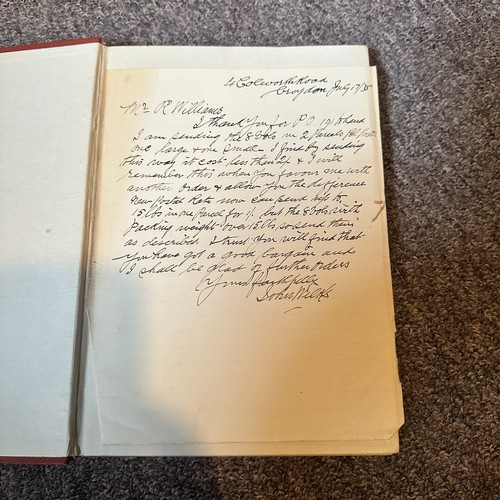 4 Colworth Road
Croydon July 17/35
Mr R Williams
I thank you for P.O. 19/- & and
I am sending the 8 Vols in 2 Parcels
one large & one small - I find by sending
this way it cost less than 1/6 & I will
remember this when you favour me with
another order & allow you the difference
New Postal Rate now can send up to
15 lbs in one Parcel for 1/- but the 8 Vols with
Packing weight over 15 lbs, so send them
as described & trust you will find that
you have got a good bargain and
I shall be glad of further orders
Yours faithfully
John Wilks